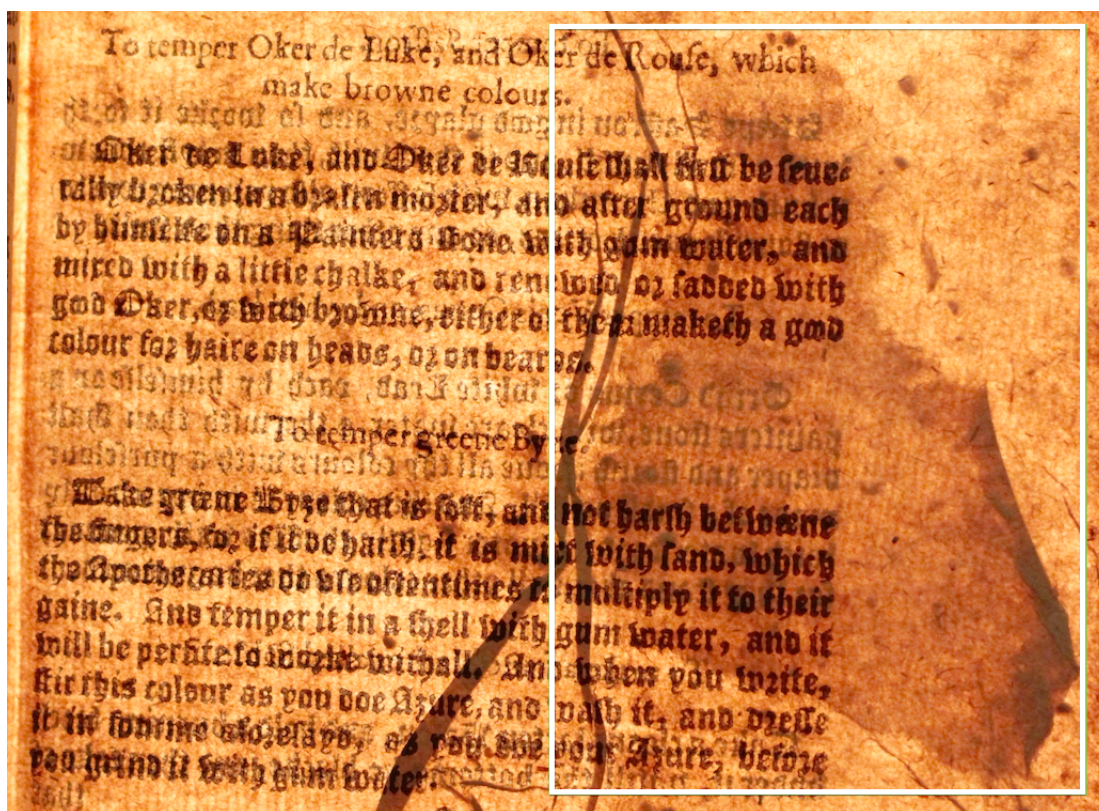 To temper Oker de Luke, and Oker de Rouse, which
make browne colours.
Oker de Luke, and Oker de Rouse shall first be seue-
rally broken in a brasen morter, and after ground each
by himselfe on a Painters stone with gum water, and
mixed with a little chalke, and renewed, or sadded with
good Oker, or with browne, either of them maketh a good
colour for haire on heads, or on beards.
To temper greene Byze.
Take greene Byze that is soft, and not harsh betweene
the fingers, for if it be harsh, it is mixt with sand, which
the Apothecaries do vse oftentimes to multiply it to their
gaine. And temper it in a shell with gum water, and it
will be perfite to worke withall. And when you write,
stir this colour as you doe Azure, and wash it, and dresse
it in fourme aforesayd, as you doe your Azure, before
you grind it with gum water.